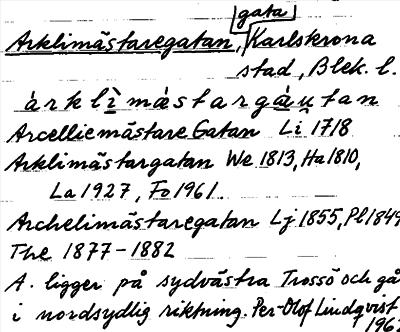 gata
Arklimästaregatan, Karlskrona
stad, Blek. l.
àrklìmästargàụtan
Arcelliemästare Gatan Li 1718
Arklimästargatan We 1813, Ha 1810,
La 1927, Fo 1961.
Archelimästaregatan Lj 1855, Pl 1849
The 1877-1882
A. ligger på sydvästra Trossö och gå
i nordsydlig riktning. Per-Olof Lindqvist
196